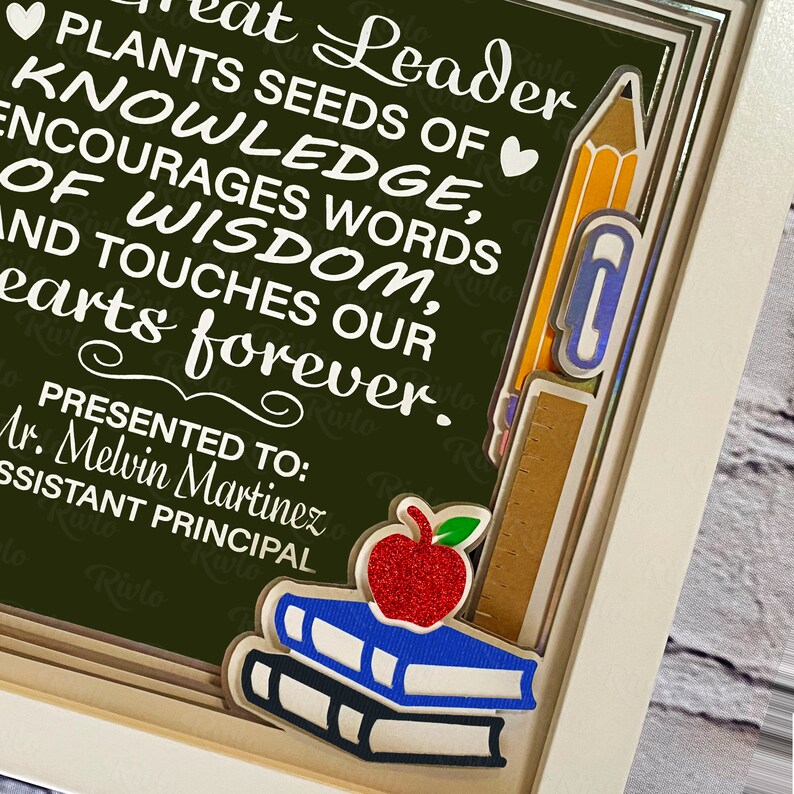 Great Leader
PLANTS SEEDS OF
KNOWLEDGE,
ENCOURAGES WORDS
OF WISDOM,
AND TOUCHES OUR
hearts forever.
PRESENTED TO:
Mr. Melvin Martinez
ASSISTANT PRINCIPAL
Rivlo